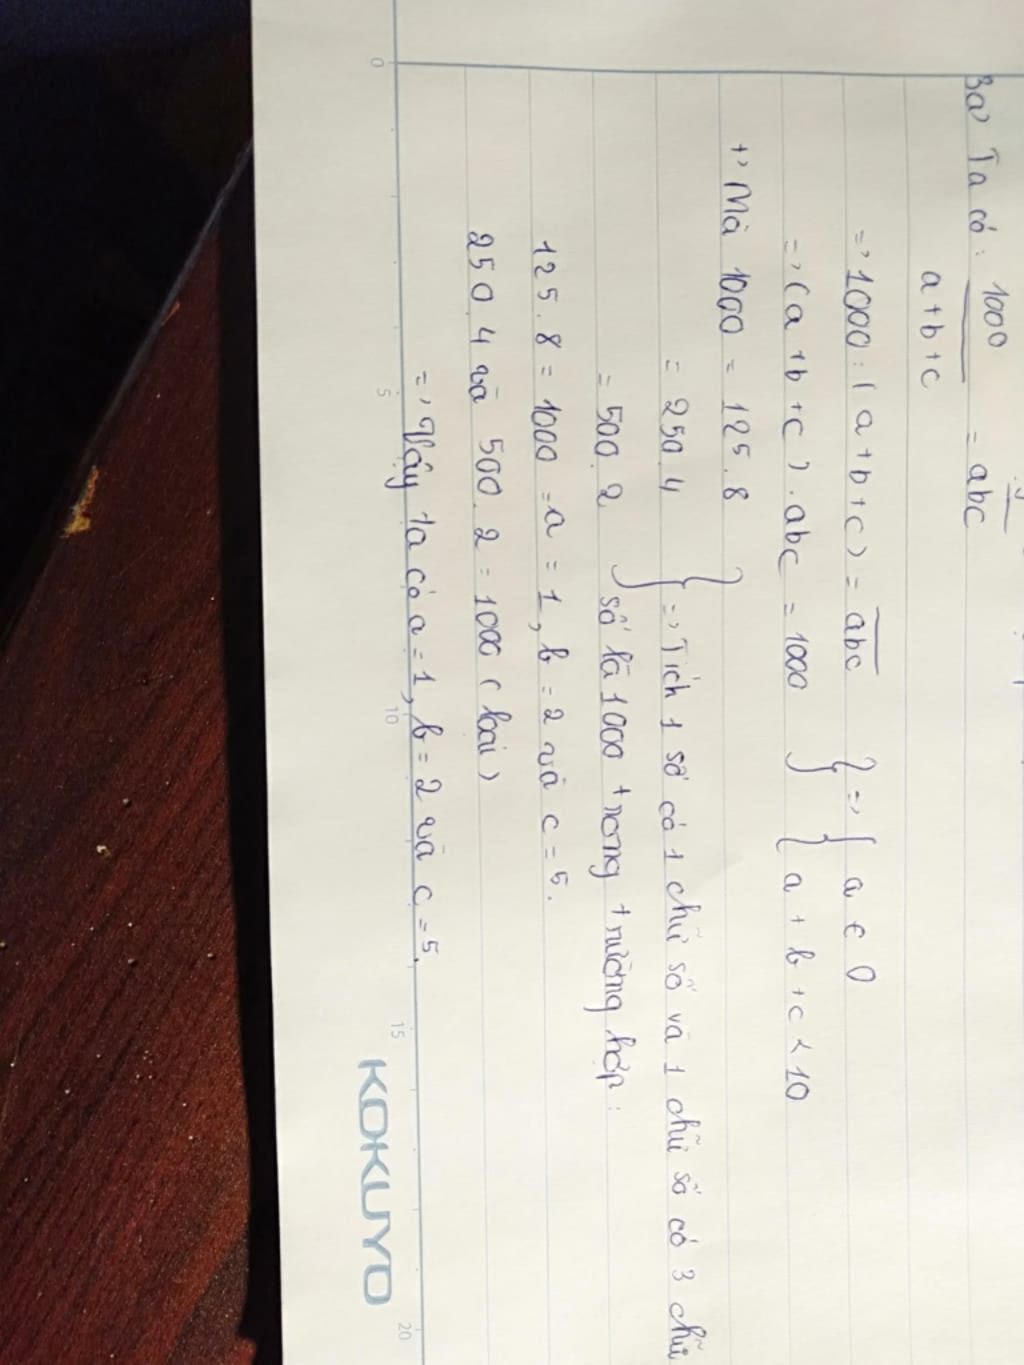 3a, Ta có: 1000 / a+b+c = abc
=, 1000 : ( a + b + c ) = abc } =, { a ∈ 0
=, ( a + b + c ) . abc = 1000 } { a + b + c < 10
+, Mà 1000 = 125 . 8
= 250 . 4 } =, Tích 1 số có 1 chữ số và 1 chữ số có 3 chữ
= 500 . 2 số là 1000 trong trường hợp :
125 . 8 = 1000 = a = 1 , b = 2 và c = 5 .
250 4 và 500 . 2 = 1000 ( loại )
=, Vậy ta có a = 1 , b = 2 và c = 5 .
0 5 10 15 20
KOKUYO